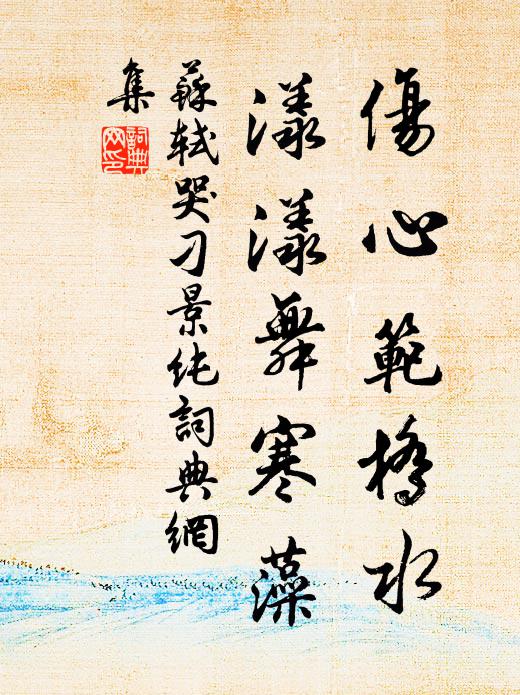 傷心範橋水
漾漾舞寒藻
蘇軾哭刁景純詞典網
集
詞典網印